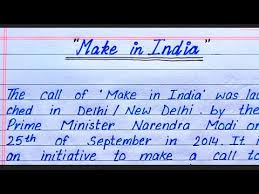 "Make in India"
The call of 'Make in India' was lau
ched in Delhi / New Delhi . by the
Prime Minister Narendra Modi on
25th of September in 2014. It i
an initiative to make a call to